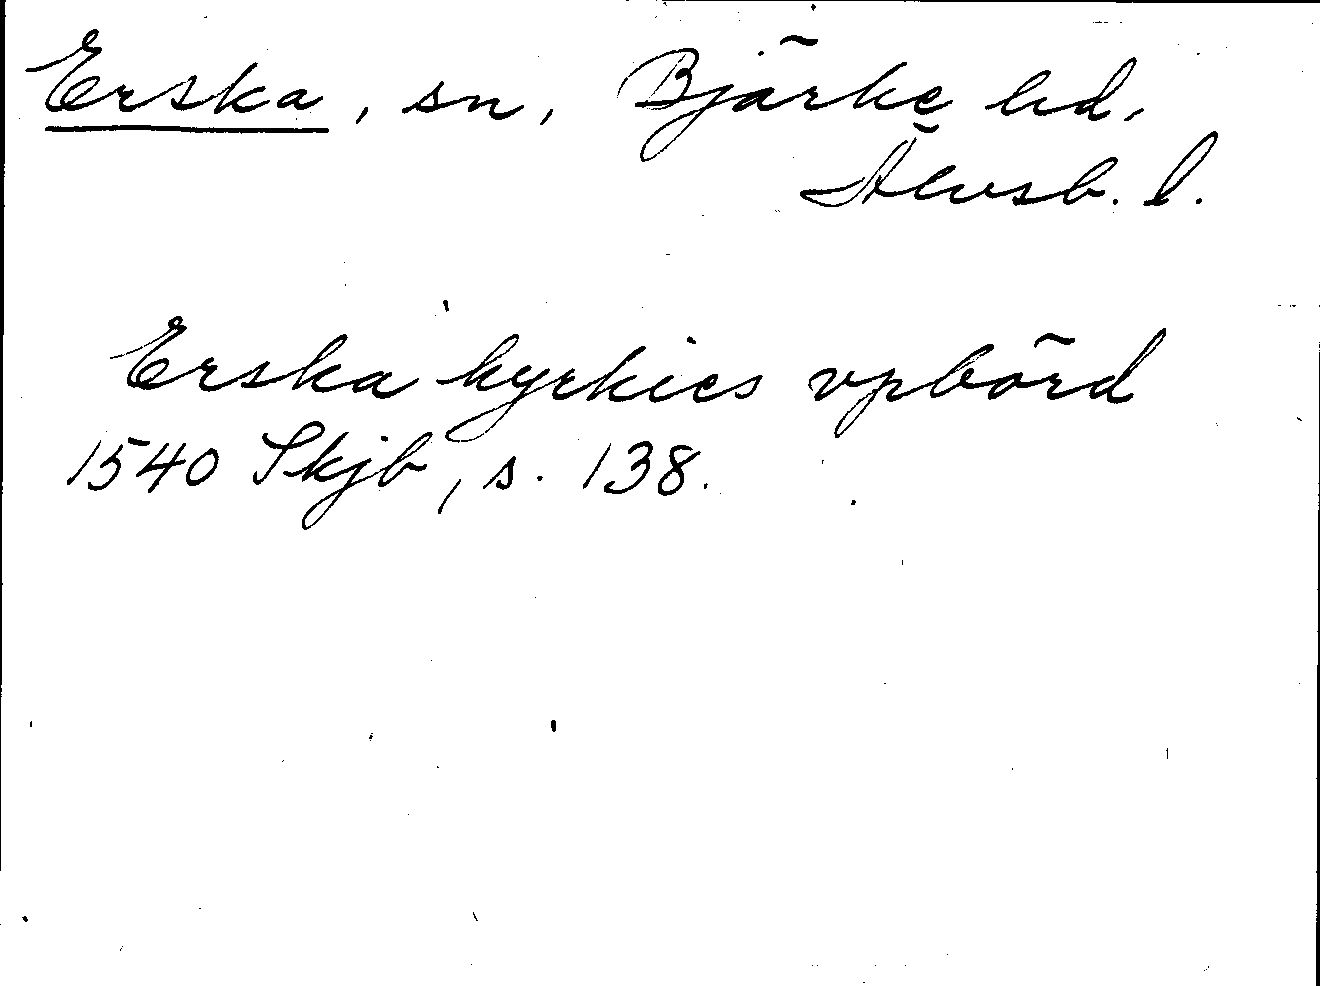 Erska, sn, Bjärke hd,
Älvsb. l.
Erska kyrkies vpbörd
1540 Skjb, s. 138.